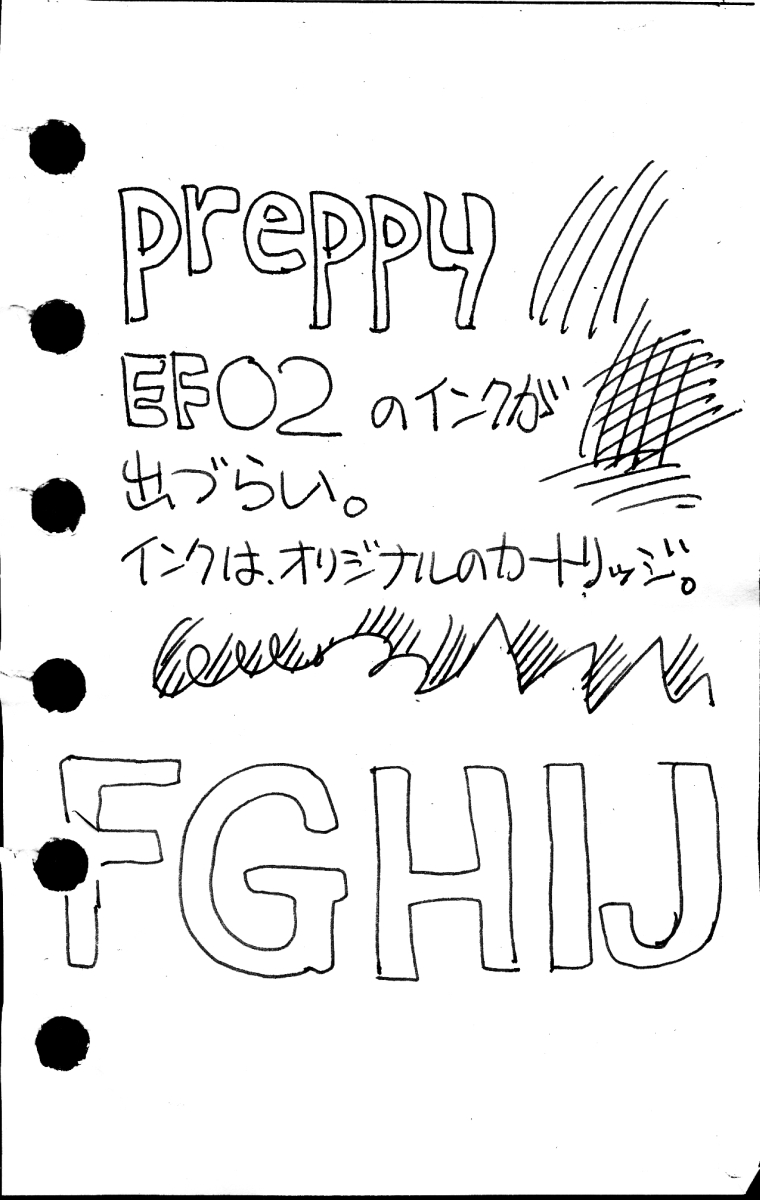 preppy
EF02 のインクが
出づらい。
インクは、オリジナルのカートリッジ。
FGHIJ